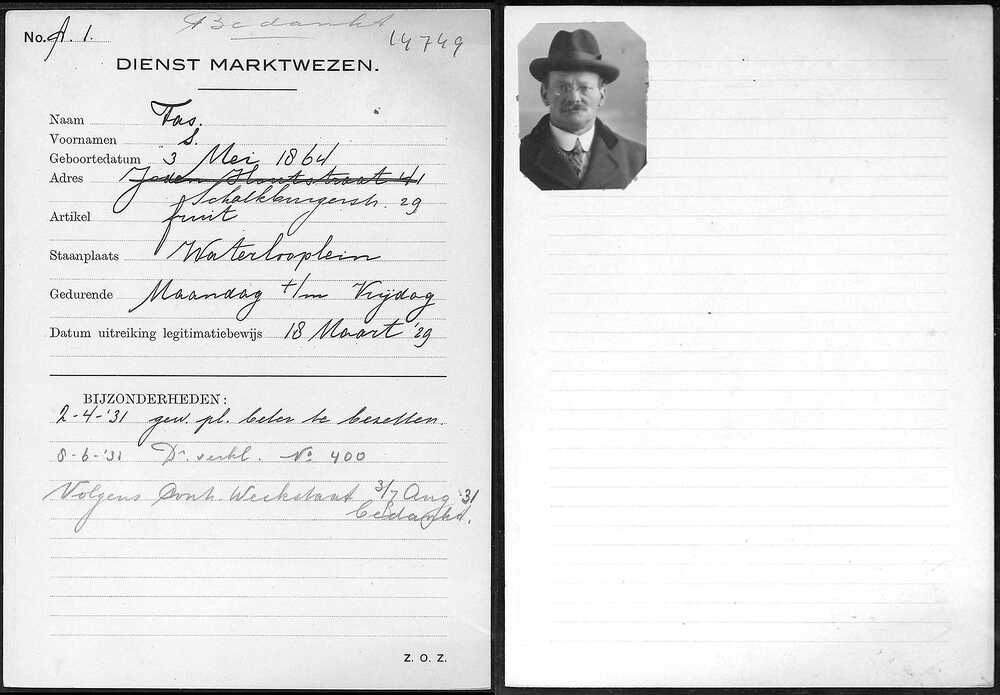 Bedankt
No. A. 1.
14749
DIENST MARKTWEZEN.
Naam Fas.
Voornamen S.
Geboortedatum 3 Mei 1864
Adres Joden Houtstraat 41
Schalkburgerstr. 29
Artikel fruit
Staanplaats Waterlooplein
Gedurende Maandag t/m Vrijdag
Datum uitreiking legitimatiebewijs 18 Maart '29
BIJZONDERHEDEN:
2-4-'31 gew. pl. beter te bezetten.
8-6-'31 Dr. verkl. No 400
Volgens Cont. Weekstaat 3/7 Aug '31
bedankt.
Z. O. Z.